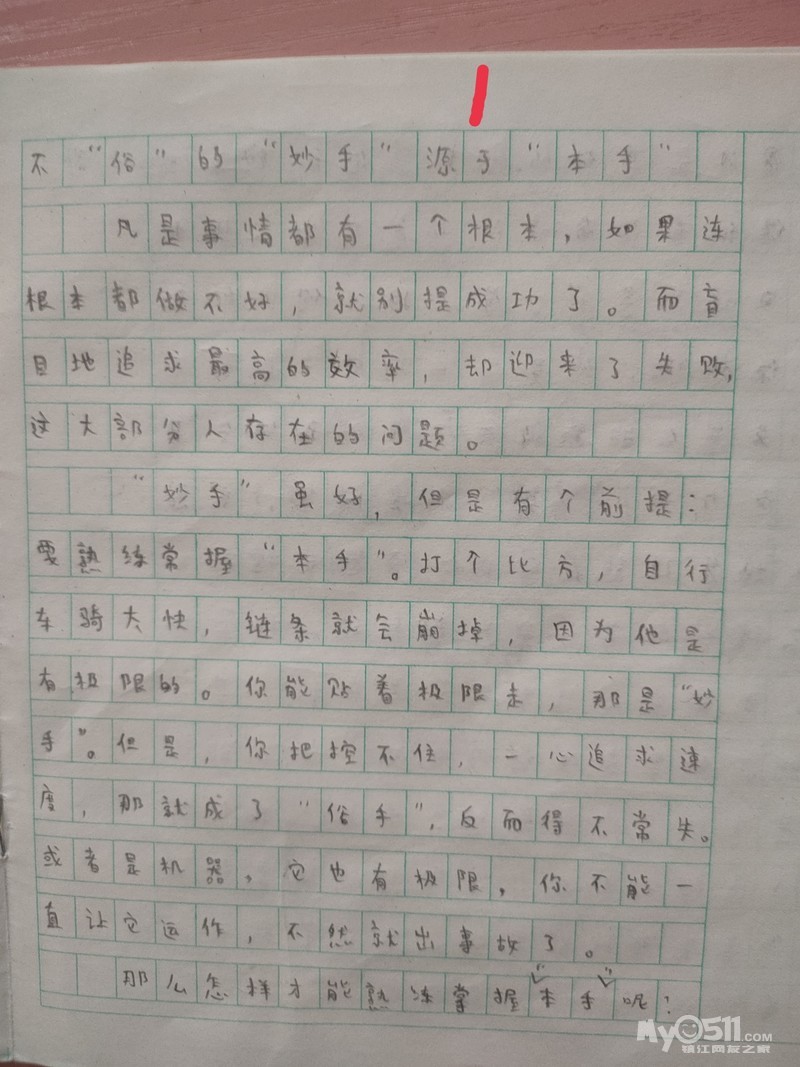 不“俗”的“妙手”源于“本手”
凡是事情都有一个根本，如果连
根本都做不好，就别提成功了。而盲
目地追求最高的效率，却迎来了失败，
这大部分人存在的问题。
“妙手”虽好，但是有个前提：
要熟练常握“本手”。打个比方，自行
车骑大快，链条就会崩掉，因为他是
有极限的。你能贴着极限走，那是“妙
手”。但是，你把控不住，一心追求速
度，那就成了“俗手”，反而得不常失。
或者是机器，它也有极限，你不能一
直让它运作，不然就出事故了。
那么怎样才能熟冻掌握“本手”呢？
My0511.COM
镇江网友之家